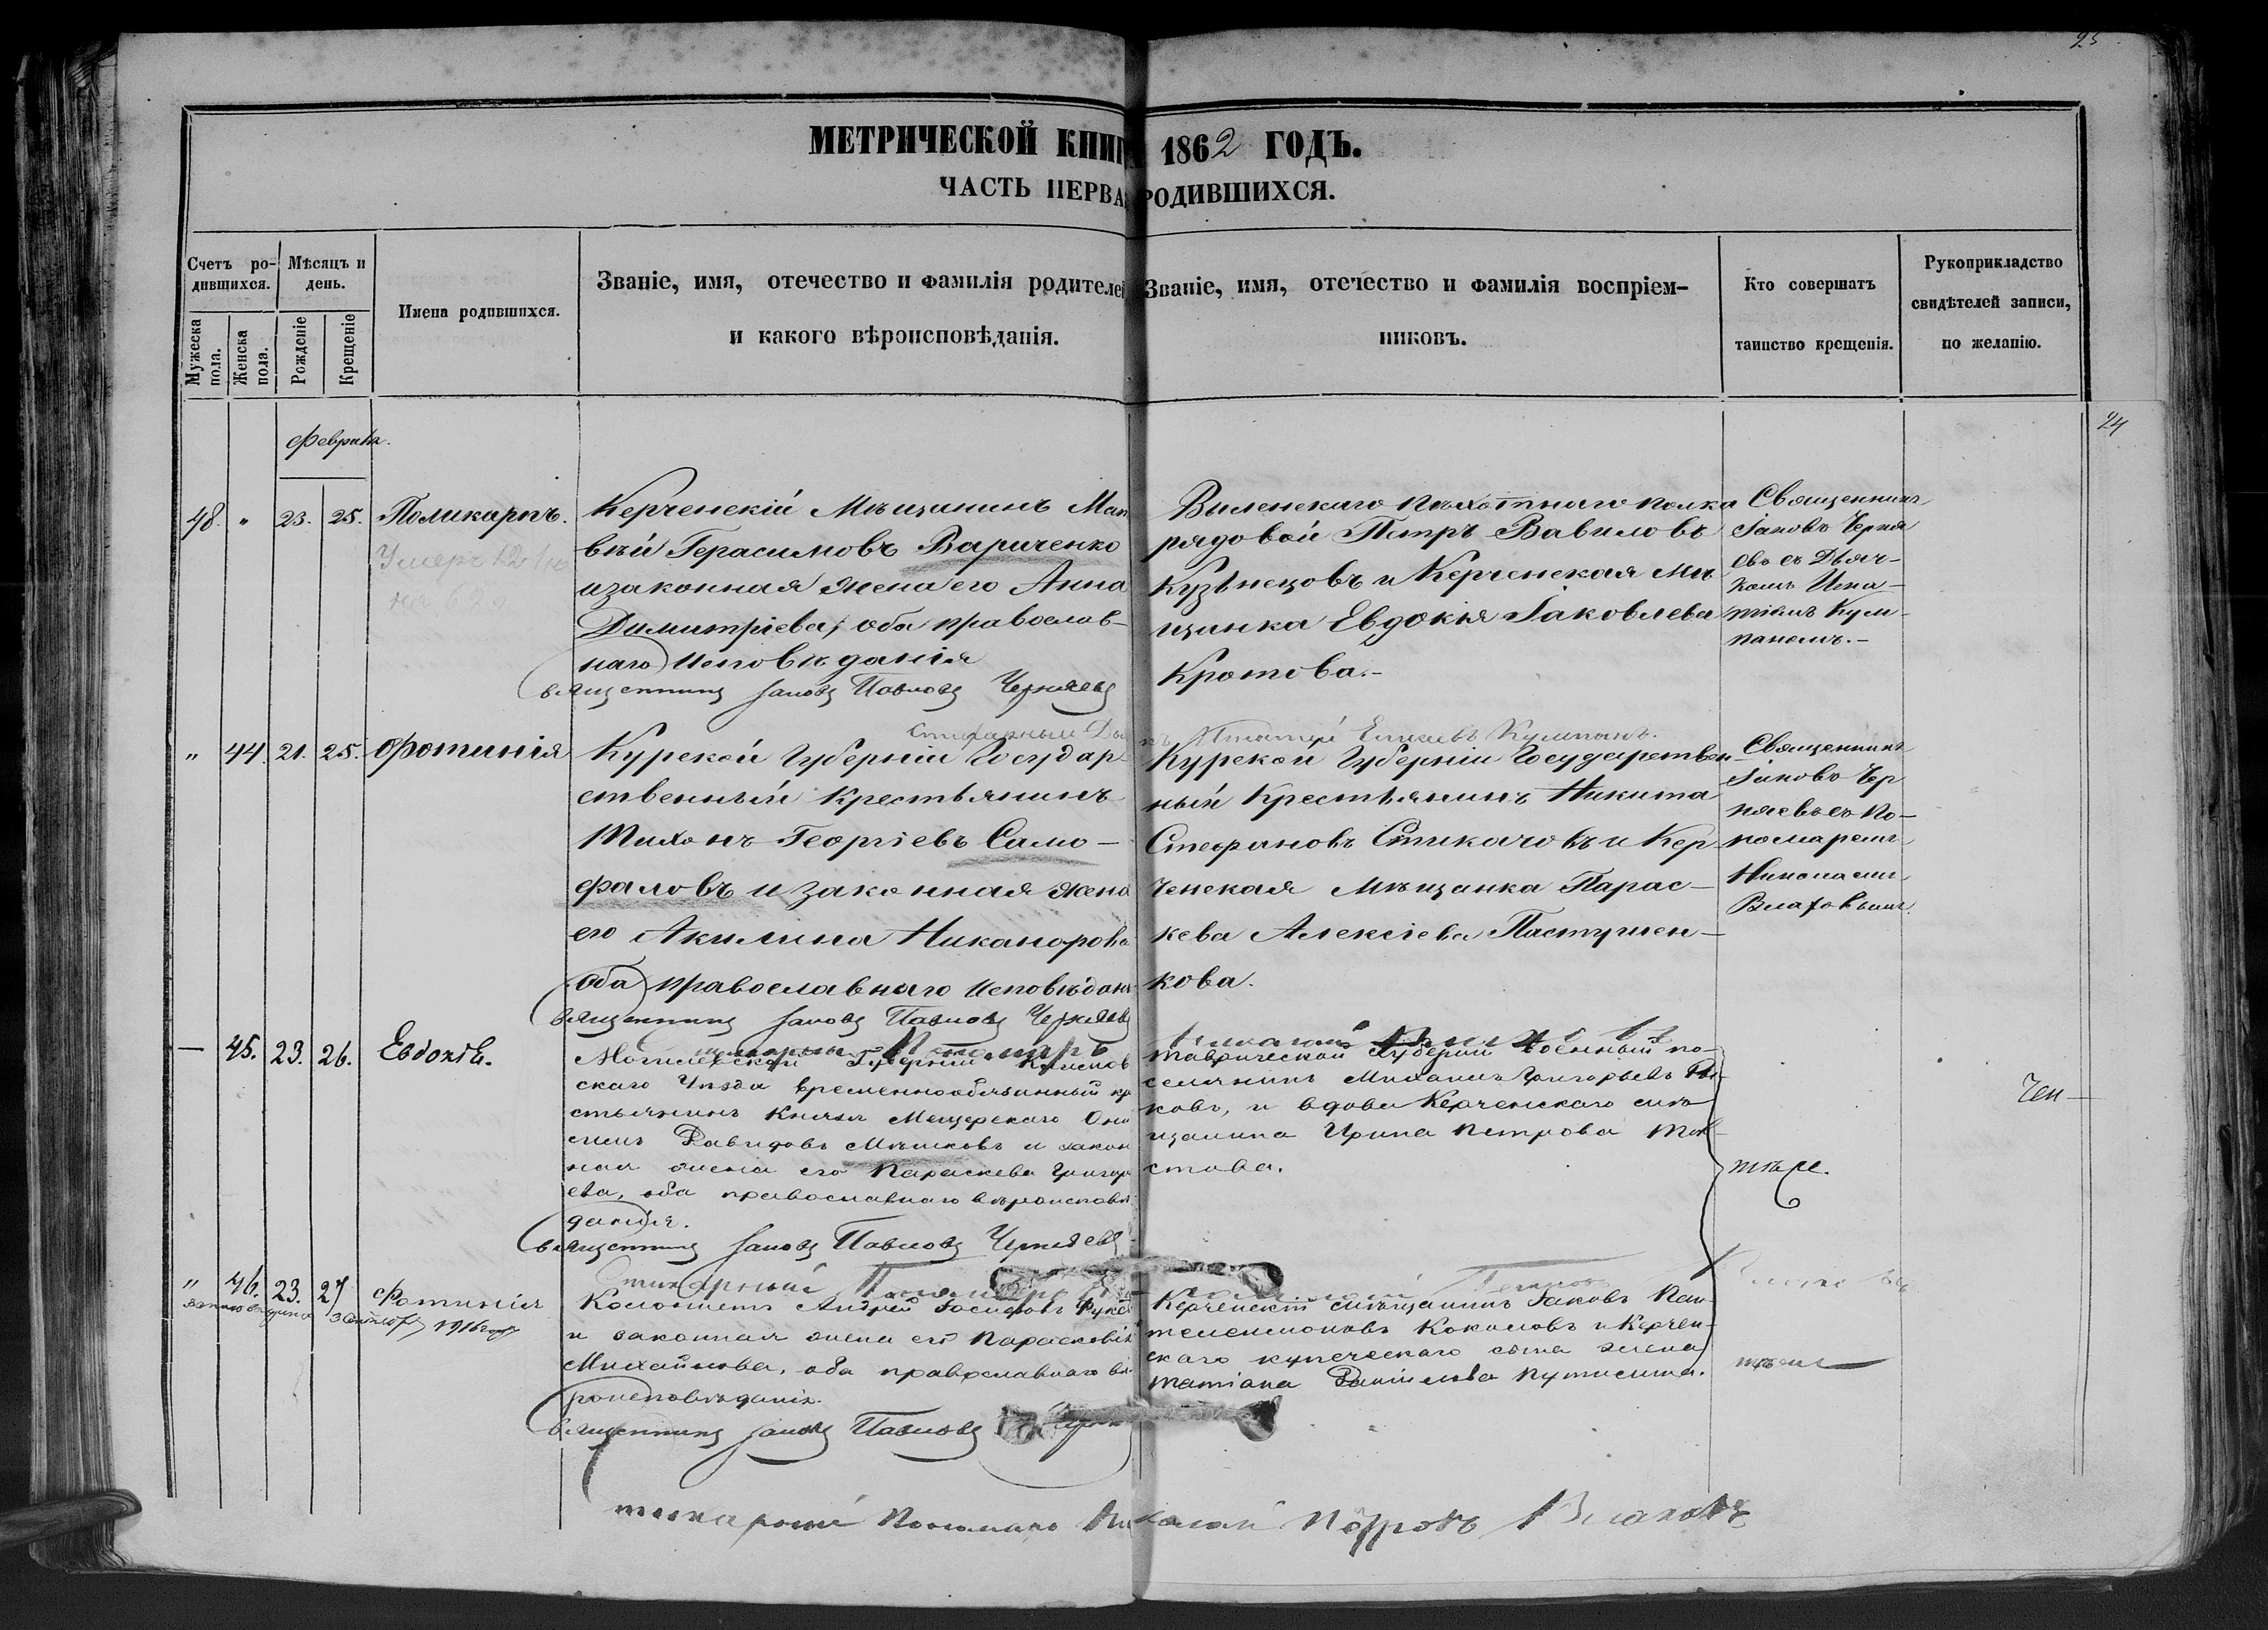 25
МЕТРИЧЕСКОЙ КНИГ 1862 ГОДЪ.
ЧАСТЬ ПЕРВА РОДИВШИХСЯ.
Счетъ ро-
дившихся.
Мужеска пола.
Женска пола.
Мѣсяцъ и
день.
Рожденіе
Крещеніе
Имена родившихся.
Званіе, имя, отечество и фамилія родителей
и какого вѣроисповѣданія.
Званіе, имя, отечество и фамилія воспріем-
никовъ.
Кто совершатъ
таинство крещенія.
Рукоприкладство
свидѣтелей записи,
по желанію.
24
Февраля.
48. " 23. 25. Поликарпъ.
Умеръ
Керченскій Мѣщанинъ Мат
вѣй Герасимовъ Вариченко
и законная жена его Анна
Димитріева, оба православ-
наго исповѣданія
Священникъ Іаковъ Павловъ Черняевъ
Виленскаго пѣхотнаго полка
рядовой Петръ Вавиловъ
Кузнецовъ и Керченская Мѣ
щанка Евдокія Іаковлева
Кротова.-
Священникъ
Іаковъ Черня
евъ съ Дьяч-
комъ Игна-
тіемъ Кули-
паномъ.-
Стихарный Дь
Игнатій
" 44. 21. 25. Фотинія
Курской Губерніи Государ
ственный крестьянинъ
Тихонъ Георгіевъ Само-
фаловъ и законная жена
его Акилина Никанорова
оба православнаго исповѣдан
Священникъ Іаковъ Павловъ Черняевъ
Курской Губерніи Государствен
ный Крестьянинъ Никита
Стефановъ Стикачовъ и Кер
ченская мѣщанка Парас-
кева Алексіева Пастушен-
кова.
Священникъ
Іаковъ Чер
няевъ съ по-
номаремъ
Николаемъ
Влаховымъ.
— 45. 23. 26. Евдокія.
Могилевской Губерніи Климов
скаго Уѣзда временнообязанный кре
стьянинъ Князя Мещерскаго Они
симъ Давидовъ Мѣшковъ и закон
ная жена его Параскева Григорь
ева, оба православнаго вѣроисповѣ
данія.
Священникъ Іаковъ Павловъ Черняевъ
Таврической Губерніи военный по-
селянинъ Михаилъ Григорьевъ
ковъ, и вдова Керченскаго мѣ
щанина Ирина Петрова Тол-
стова.
тѣже.
" 46. 23. 27 Фотинія
1916 года
Стихарный Пономарь
Колонистъ Андрей Іосифовъ
и законная жена его Параскевія
Михайлова, оба православнаго вѣ-
роисповѣданія.
Священникъ Іаковъ Павловъ
Керченскій мѣщанинъ Іаковъ Пан-
телеимоновъ Кокомовъ и Керчен-
скаго купеческаго сына жена
Татіана Даніилова Путисина.
тѣже
Стихарный Пономарь Николай Петровъ Влаховъ